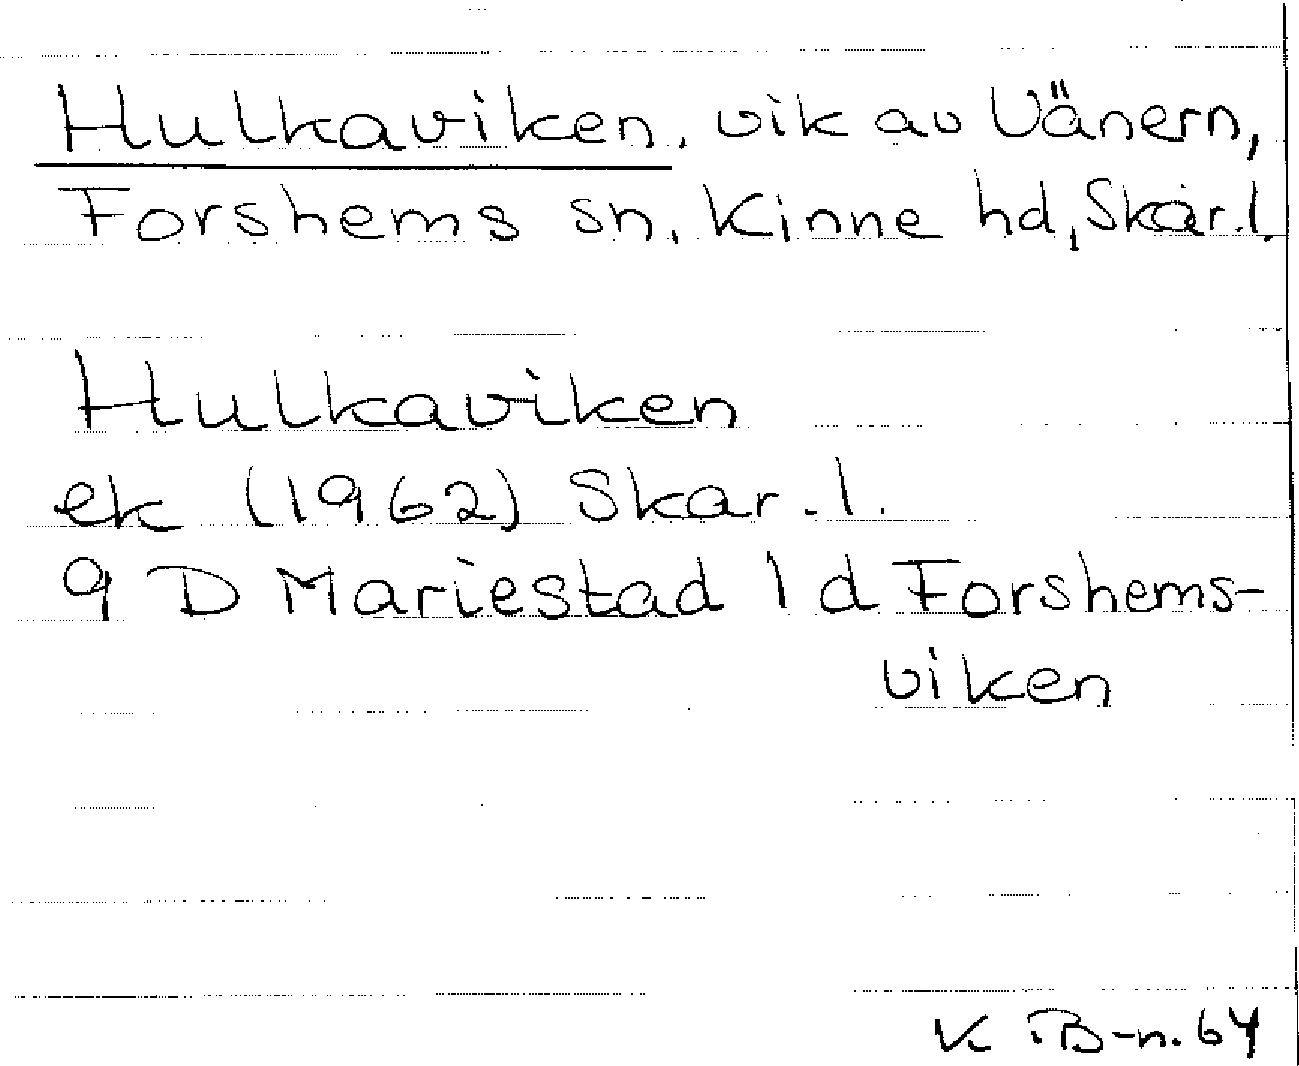 Hulkaviken, vik av Vänern,
Forshems sn, Kinne hd, Skar.l.
Hulkaviken
ek (1962) Skar.l.
9 D Mariestad 1 d Forshems-
viken
K B-n. 64